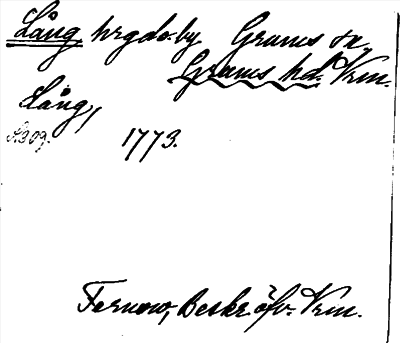 Lång hrgdo. by Grums sn,
Grums hd. Vrm.
Lång,
s. 309. 1773.
Fernow, Beskr. öfv. Vrm.